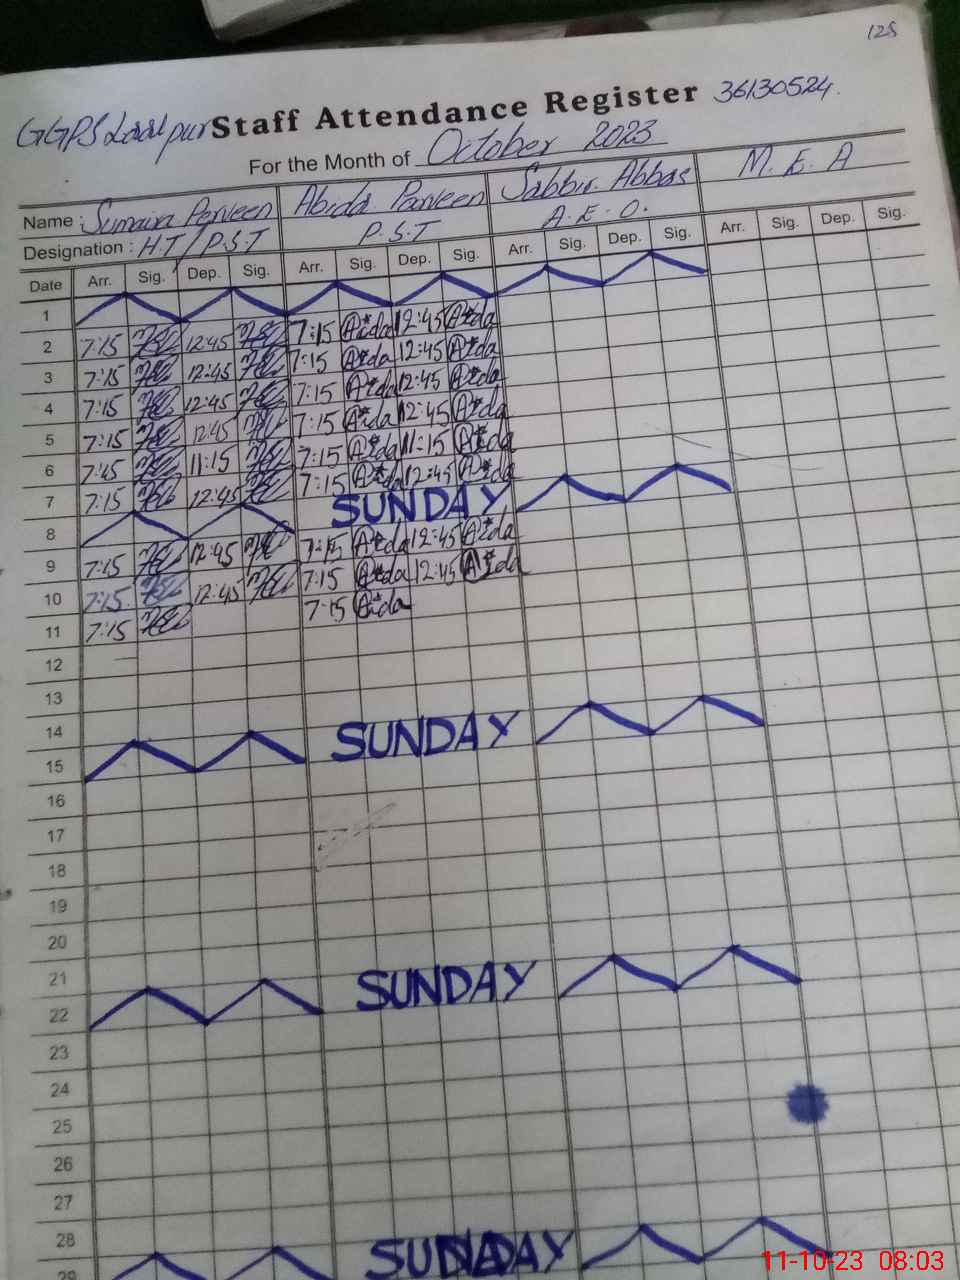 125
GGPS Laalpur Staff Attendance Register 36130524.
For the Month of October 2023
Name : Sumaira Perveen Abida Parveen Sabbir Abbas M. E. A
Designation : H.T/P.S.T P.S.T A.E.O.
Date Arr. Sig. Dep. Sig. Arr. Sig. Dep. Sig. Arr. Sig. Dep. Sig. Arr. Sig. Dep. Sig.
1
2 7:15 12:45 7:15 Aida 12:45 Aida
3 7:15 12:45 7:15 Aida 12:45 Aida
4 7:15 12:45 7:15 Aida 12:45 Aida
5 7:15 12:45 7:15 Aida 12:45 Aida
6 7:15 11:15 7:15 Aida 11:15 Aida
7 7:15 12:45 7:15 Aida 12:45 Aida
8 SUNDAY
9 7:15 12:45 7:15 Aida 12:45 Aida
10 7:15 12:45 7:15 Aida 12:45 Aida
11 7:15 7:15 Aida
12
13
14
15 SUNDAY
16
17
18
19
20
21
22 SUNDAY
23
24
25
26
27
28
29 SUNDAY
11-10-23 08:03